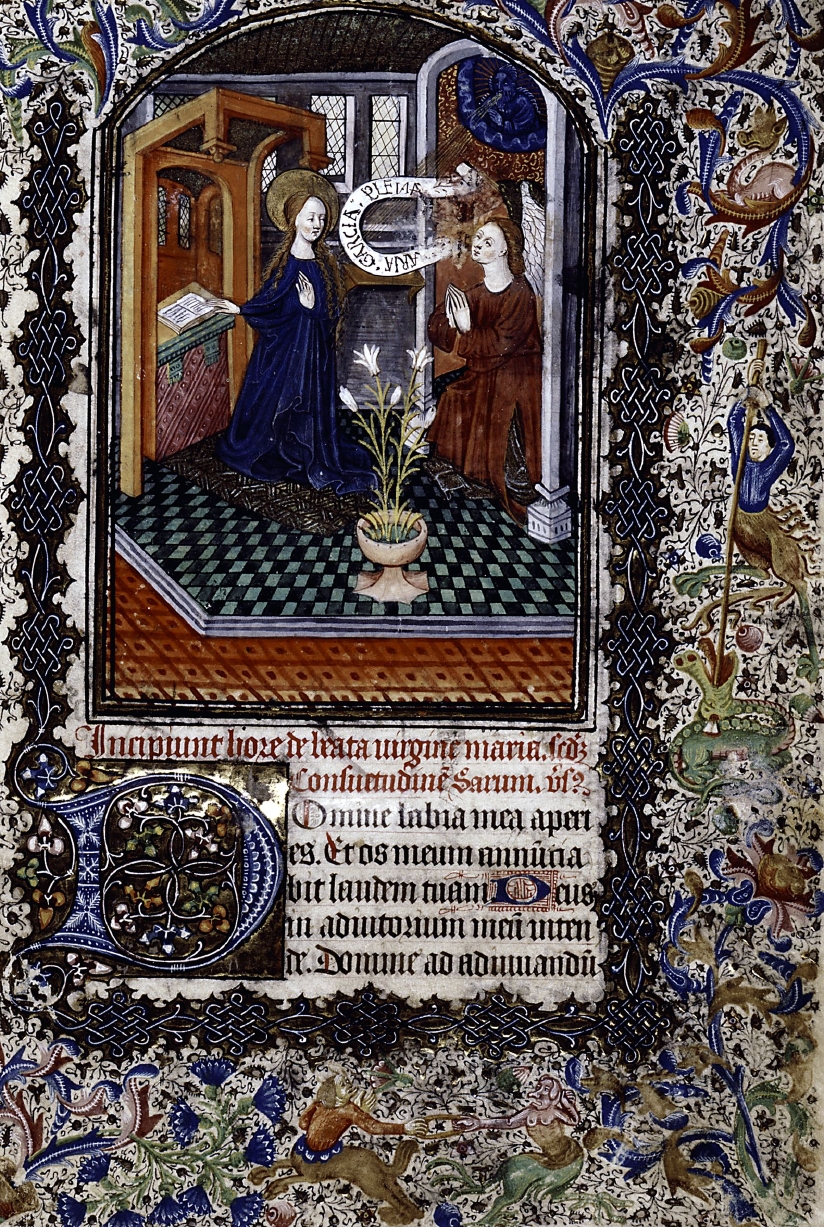 ARIA · GARCIA · PLEIA
Incipiunt hore de beata uirgine maria. scdȝ
Consuetudinē Sarum.
DOmine labia mea aperi
es. Et os meum annūcia
bit laudem tuam Deus
in adiutorium meū inten
de. Domine ad adiuuandū